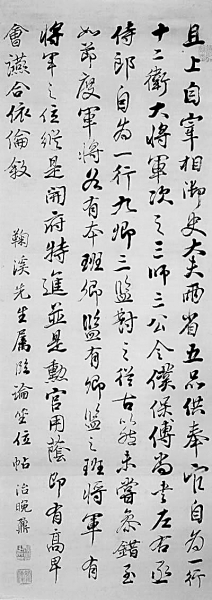 且上自宰相御史大夫兩省五品供奉官自為一行
十二衛大將軍次之三師三公令僕保傅尚書左右丞
侍郎自為一行九卿三監對之從古然未嘗參錯至
如節度軍將各有本班卿監有卿監之班將軍有
將軍之位縱是開府特進並是勳官用蔭即有高卑
會讌合依倫敘
鞠溪先生屬臨論坐位帖